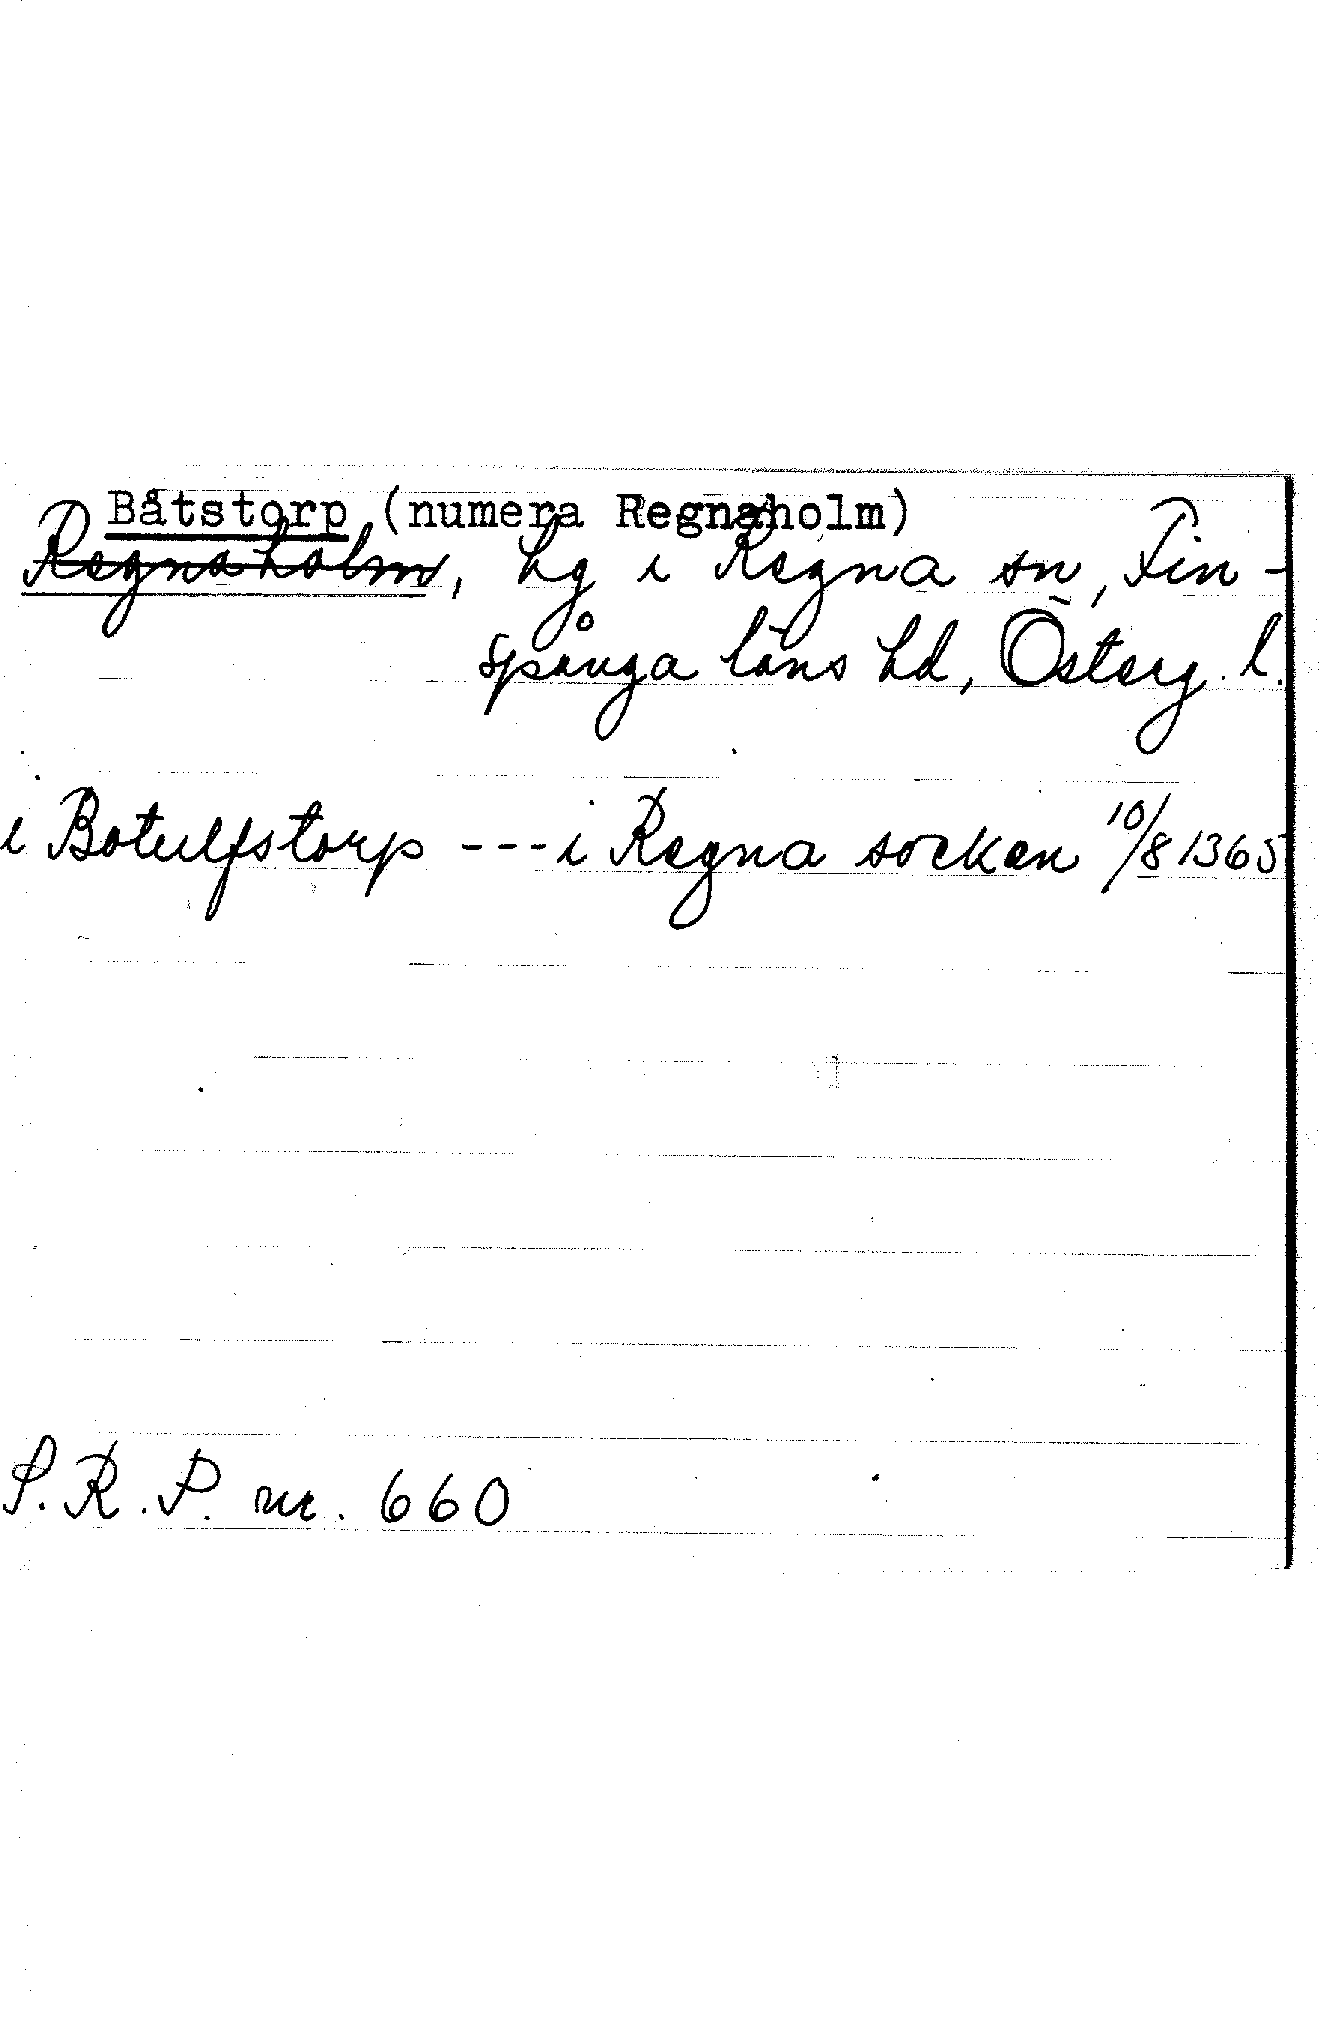 Båtstorp (numera Regnaholm)
Regnaholm, hg i Regna sn, Fin-
spånga läns hd, Österg. l.
i Botulfstorp --- i Regna socken 10/8 1365
S.R.P. nr. 660